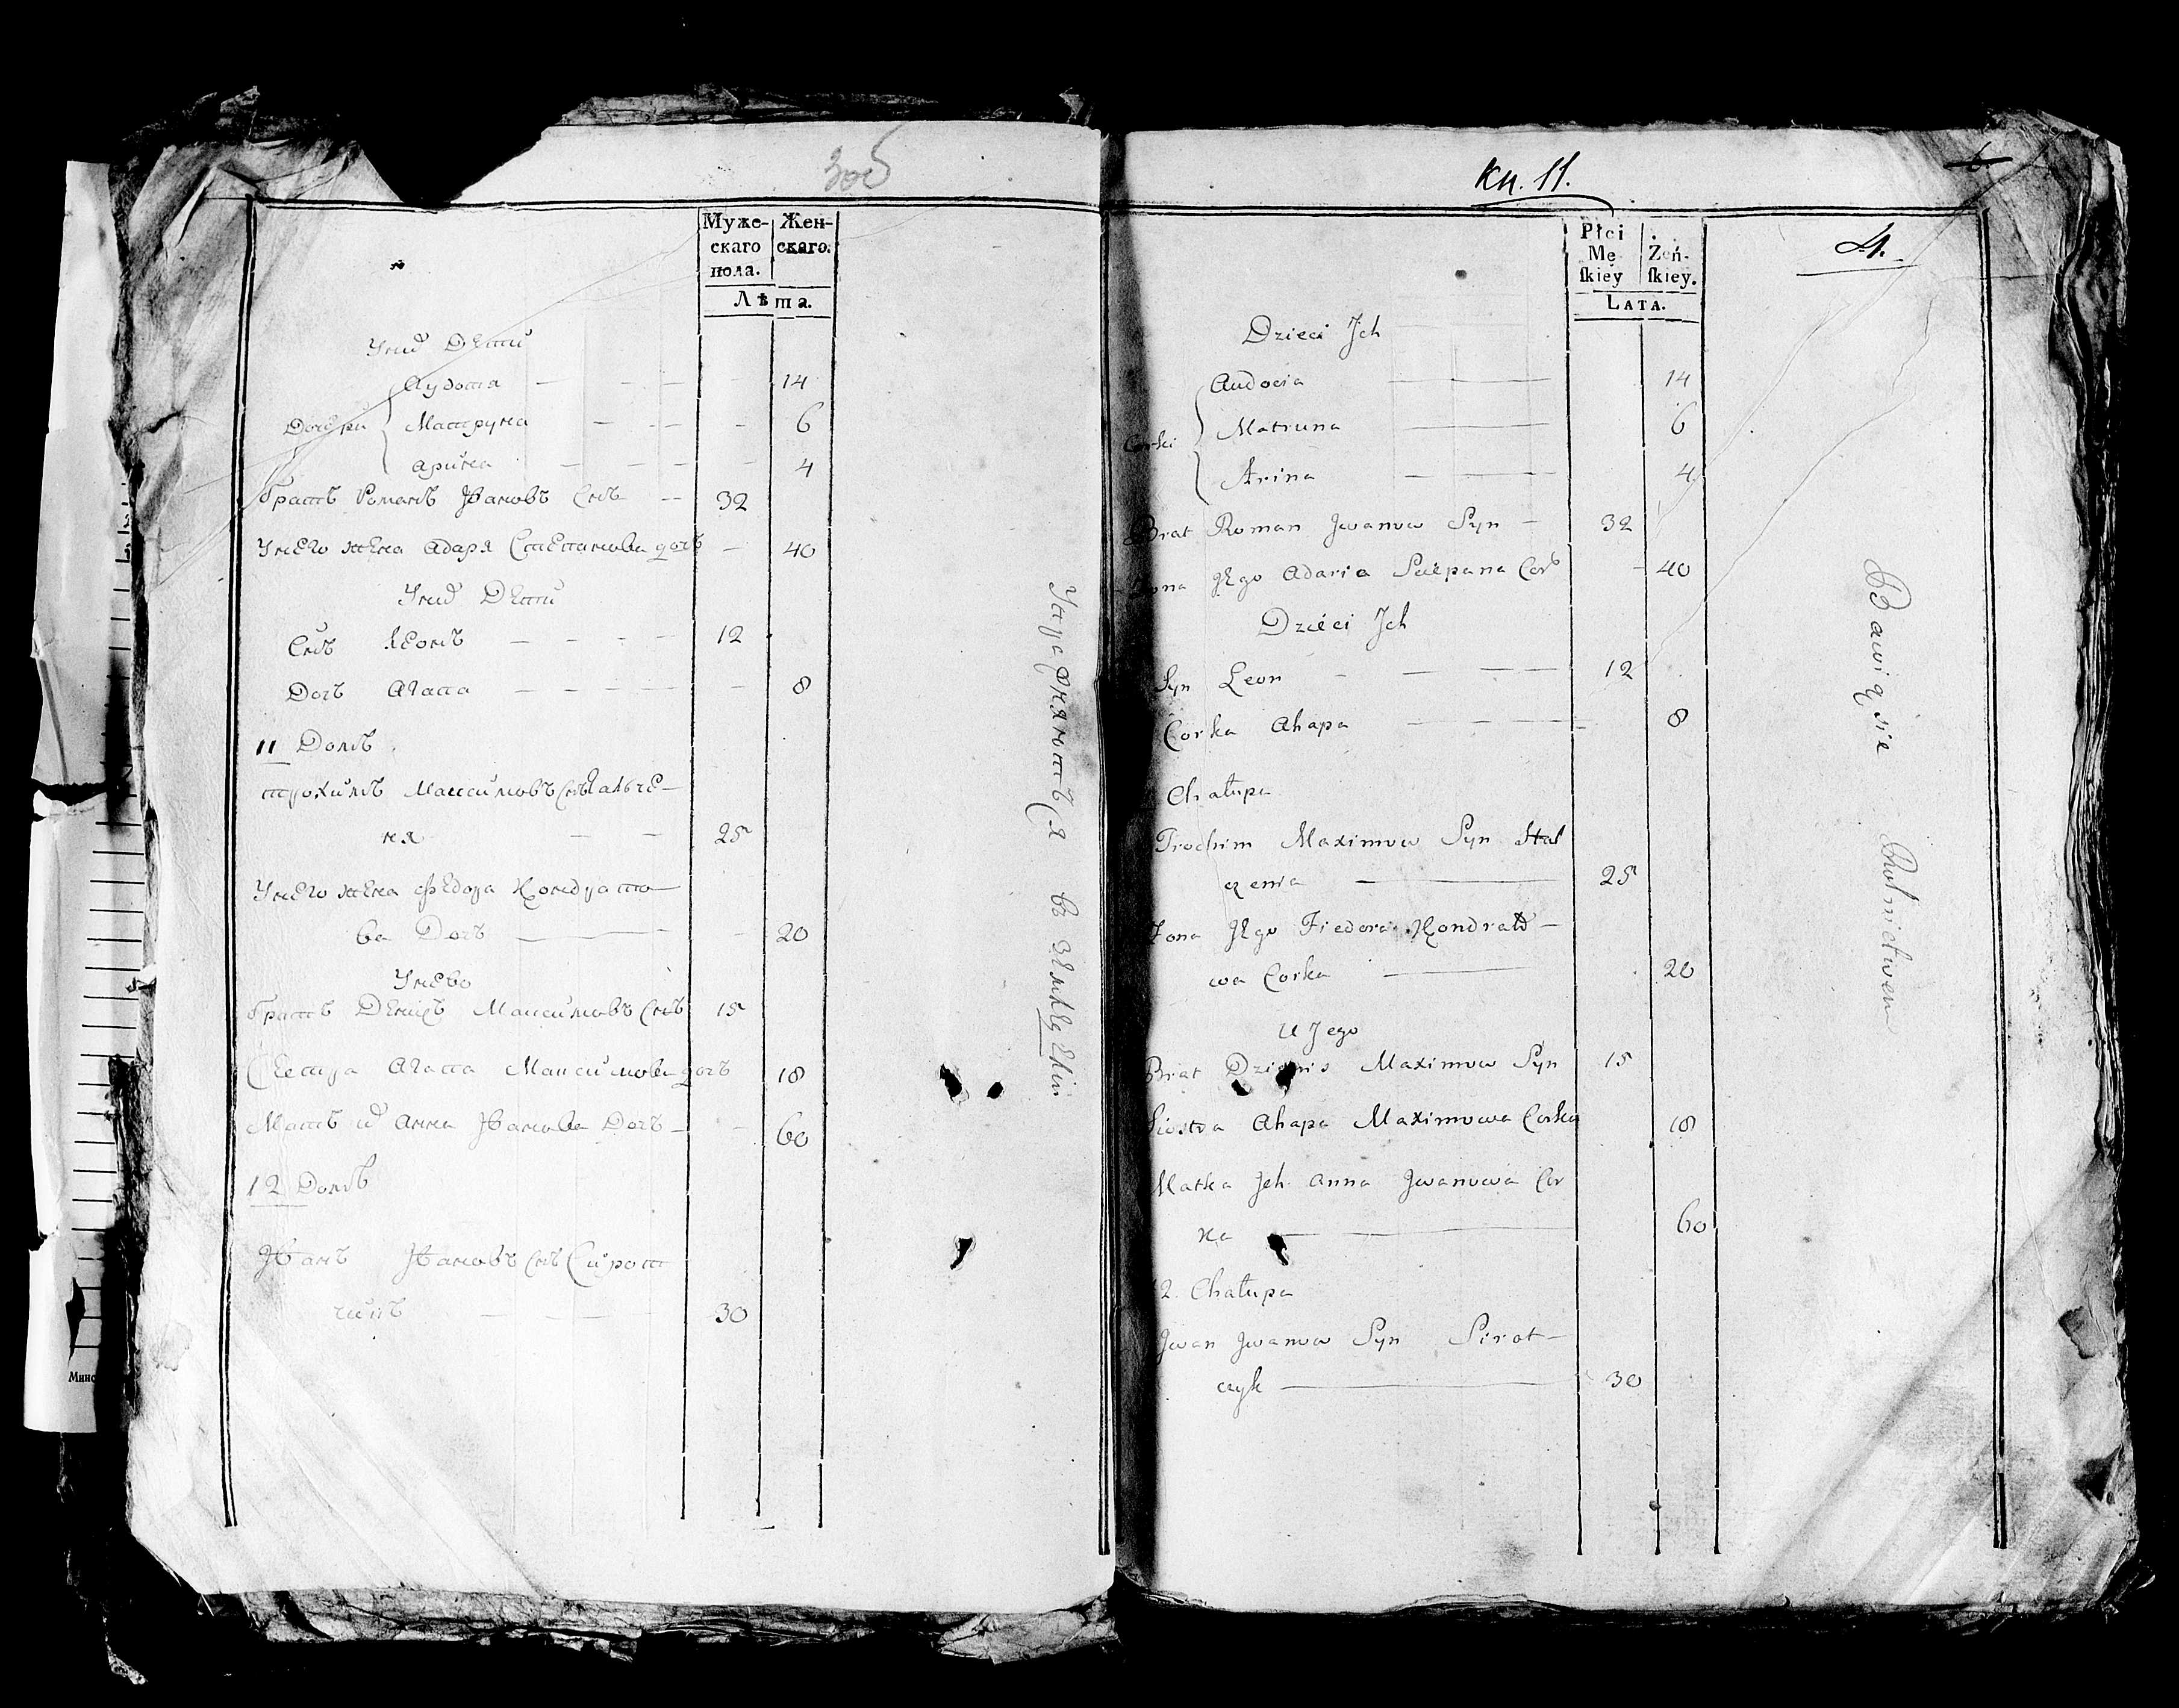 306
Муже-
скаго
пола.
Жен-
скаго.
Лѣта.
Унихъ Дети
Аудотя 14
Дочери Матруна 6
Арина 4
братъ Романъ Ивановъ Снъ 32
Унего жена Адаря Степанова дочъ 40
Унихъ Дети
Снъ Леонъ 12
Дочъ Агапа 8
11 Домъ
трохимъ Максимовъ Снъ Гальче-
ня 25
Унего жена федора Кондрато-
ва Дочъ 20
Унево
братъ Денисъ Максимовъ Снъ 15
Сестра Агапа Максимова дочъ 18
Мать их Анна Иванова Дочъ 60
12 Домъ
Иванъ Ивановъ Снъ Сирот
чикъ 30
Упражняютъся в
Кн. 11.
4.
Płci
Mę-
skiey
Żeń-
skiey.
LATA.
Dzieci Jch
Audocia 14
Corki Matruna 6
Arina 4
Brat Roman Jwanow Syn 32
Żona Jego Adaria Sciepana Cor 40
Dzieci Jch
Syn Leon 12
Corka Ahapa 8
Chałupa
Trochim Maximow Syn Hal
czenia 25
Żona Jego Fiedora Kondrato-
wa Corka 20
U Jego
Brat Dzienis Maximow Syn 15
Siostra Ahapa Maximowa Corka 18
Matka Jch Anna Jwanowa Cor
ka 60
12 Chałupa
Jwan Jwanow Syn Sirot-
czyk 30
Bawią się Rolnictwem